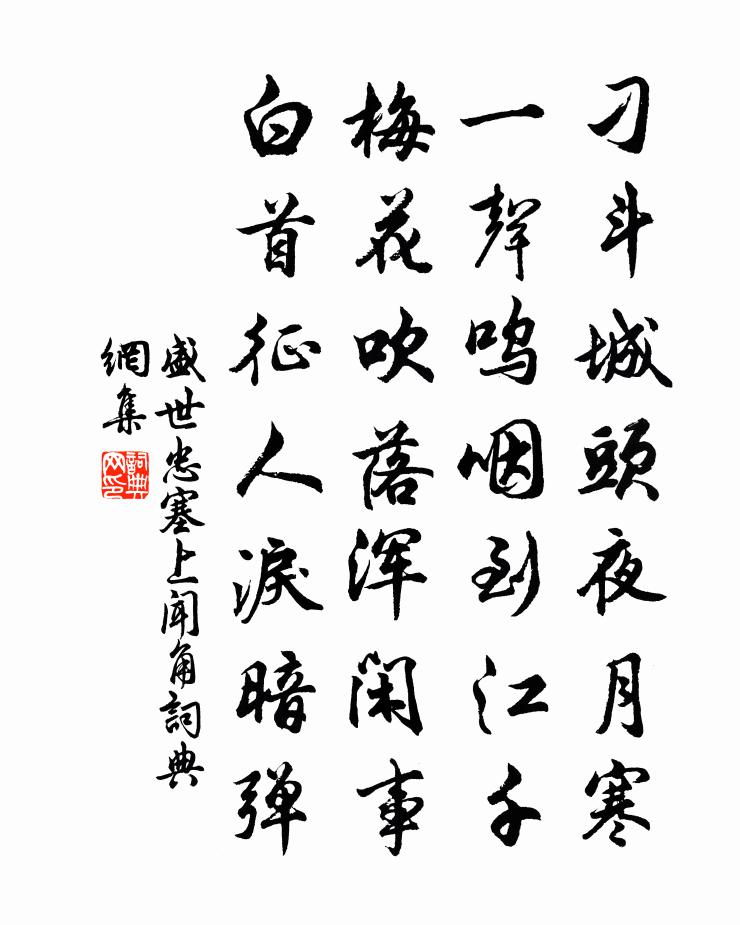 刁斗城頭夜月寒
一聲嗚咽到江干
梅花吹落浑闲事
白首征人淚暗弹
盛世忠塞上聞角詞典
網集
詞典网印